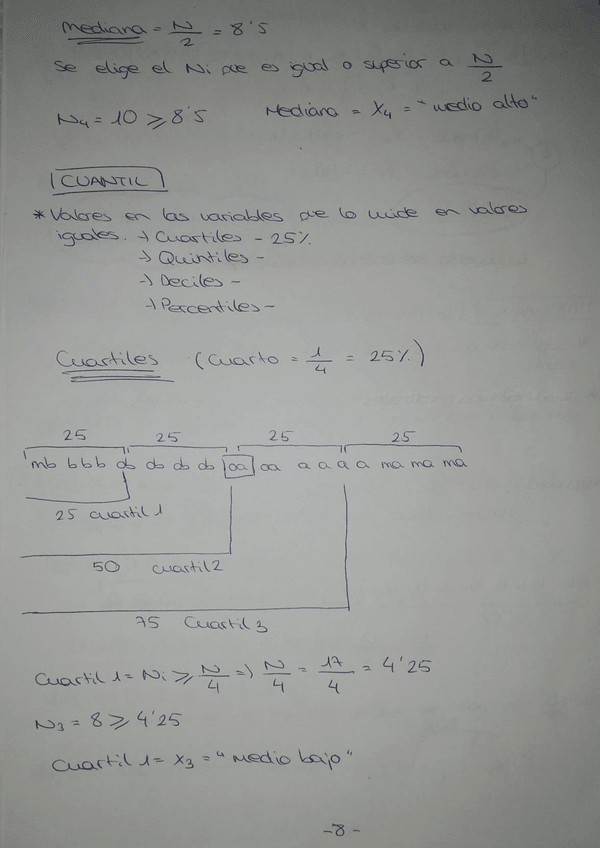 mediana = N/2 = 8'5
Se elige el Ni que es igual o superior a N/2
N4 = 10 ⩾ 8'5 Mediana = X4 = "medio alto"
CUANTIL
* Valores en las variables que lo mide en valores
iguales. → Cuartiles - 25%
→ Quintiles -
→ Deciles -
→ Percentiles -
Cuartiles (Cuarto = 1/4 = 25%)
25 25 25 25
mb b b b ob ob ob ob oa oa a a a a ma ma ma
25 cuartil 1
50 cuartil 2
75 Cuartil 3
Cuartil 1 = Ni ⩾ N/4 => N/4 = 17/4 = 4'25
N3 = 8 ⩾ 4'25
Cuartil 1 = X3 = "Medio bajo"
-8-